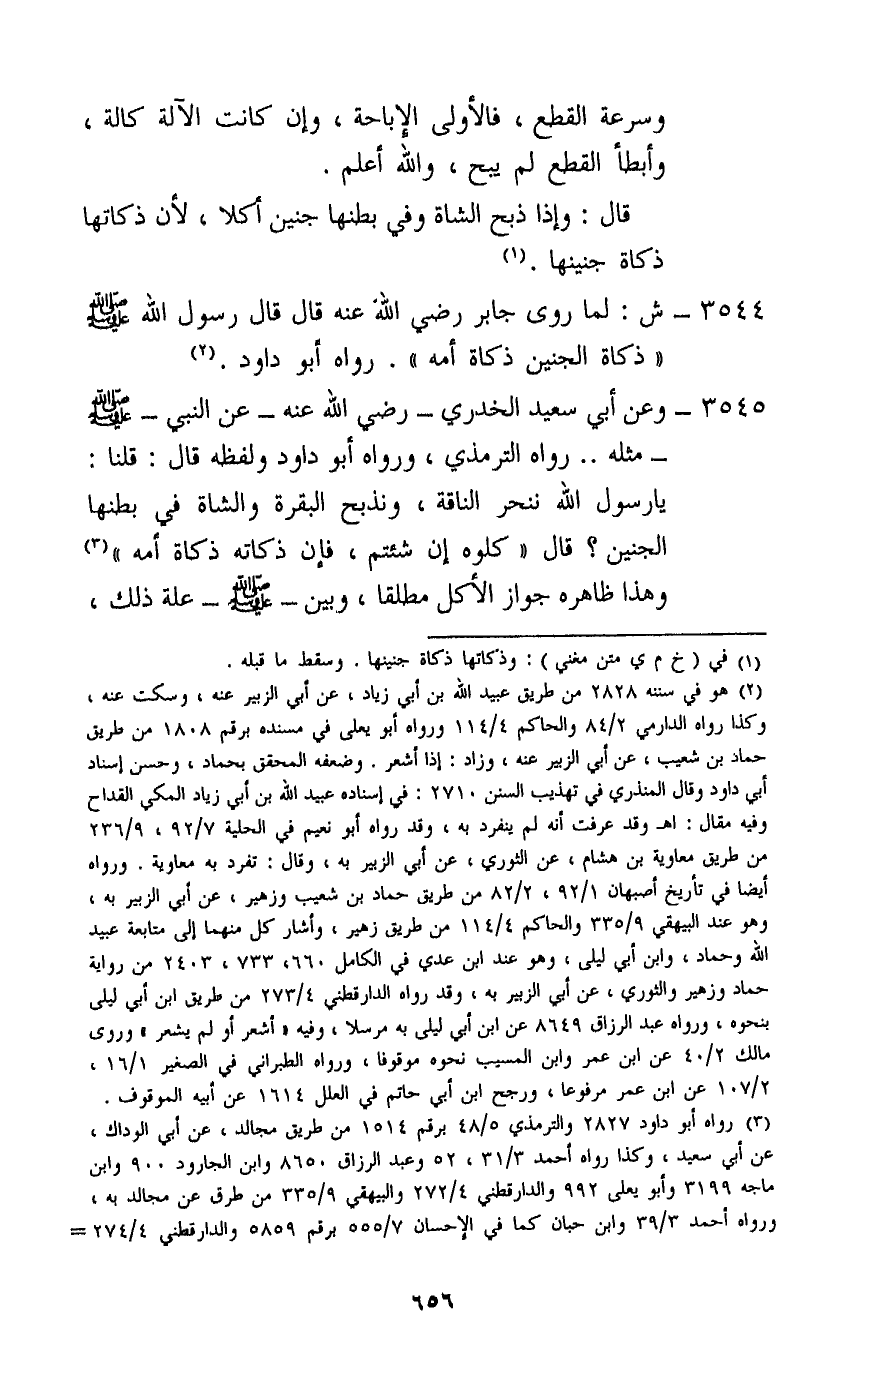 وسرعة القطع ، فالأولى الإباحة ، وإن كانت الآلة كالة ،
وأبطأ القطع لم يبح ، والله أعلم .
قال : وإذا ذبح الشاة وفي بطنها جنين أكلا ، لأن ذكاتها
ذكاة جنينها .(١)
٣٥٤٤ – ش : لما روى جابر رضي الله عنه قال قال رسول الله ﷺ
« ذكاة الجنين ذكاة أمه » . رواه أبو داود .(٢)
٣٥٤٥ – وعن أبي سعيد الخدري – رضي الله عنه – عن النبي – ﷺ
– مثله .. رواه الترمذي ، ورواه أبو داود ولفظه قال : قلنا :
يارسول الله ننحر الناقة ، ونذبح البقرة والشاة في بطنها
الجنين ؟ قال « كلوه إن شئتم ، فإن ذكاته ذكاة أمه »(٣)
وهذا ظاهره جواز الأكل مطلقا ، وبين – ﷺ – علة ذلك ،
(١) في ( خ م ي متن مغني ) : وذكاتها ذكاة جنينها . وسقط ما قبله .
(٢) هو في سننه ٢٨٢٨ من طريق عبيد الله بن أبي زياد ، عن أبي الزبير عنه ، وسكت عنه ،
وكذا رواه الدارمي ٨٤/٢ والحاكم ١١٤/٤ ورواه أبو يعلى في مسنده برقم ١٨٠٨ من طريق
حماد بن شعيب ، عن أبي الزبير عنه ، وزاد : إذا أشعر . وضعفه المحقق بحماد ، وحسن إسناد
أبي داود وقال المنذري في تهذيب السنن ٢٧١٠ : في إسناده عبيد الله بن أبي زياد المكي القداح
وفيه مقال : اهـ وقد عرفت أنه لم ينفرد به ، وقد رواه أبو نعيم في الحلية ٩٢/٧ ، ٢٣٦/٩
من طريق معاوية بن هشام ، عن الثوري ، عن أبي الزبير به ، وقال : تفرد به معاوية . ورواه
أيضا في تأريخ أصبهان ٩٢/١ ، ٨٢/٢ من طريق حماد بن شعيب وزهير ، عن أبي الزبير به ،
وهو عند البيهقي ٣٣٥/٩ والحاكم ١١٤/٤ من طريق زهير ، وأشار كل منهما إلى متابعة عبيد
الله وحماد ، وابن أبي ليلى ، وهو عند ابن عدي في الكامل ٦٦٠، ٧٣٣ ، ٢٤٠٣ من رواية
حماد وزهير والثوري ، عن أبي الزبير به ، وقد رواه الدارقطني ٢٧٣/٤ من طريق ابن أبي ليلى
بنحوه ، ورواه عبد الرزاق ٨٦٤٩ عن ابن أبي ليلى به مرسلا ، وفيه « أشعر أو لم يشعر » وروى
مالك ٤٠/٢ عن ابن عمر وابن المسيب نحوه موقوفا ، ورواه الطبراني في الصغير ١٦/١ ،
١٠٧/٢ عن ابن عمر مرفوعا ، ورجح ابن أبي حاتم في العلل ١٦١٤ عن أبيه الموقوف .
(٣) رواه أبو داود ٢٨٢٧ والترمذي ٤٨/٥ برقم ١٥١٤ من طريق مجالد ، عن أبي الوداك ،
عن أبي سعيد ، وكذا رواه أحمد ٣١/٣ ، ٥٢ وعبد الرزاق ٨٦٥٠ وابن الجارود ٩٠٠ وابن
ماجه ٣١٩٩ وأبو يعلى ٩٩٢ والدارقطني ٢٧٢/٤ والبيهقي ٣٣٥/٩ من طرق عن مجالد به ،
ورواه أحمد ٣٩/٣ وابن حبان كما في الإحسان ٥٥٥/٧ برقم ٥٨٥٩ والدارقطني ٢٧٤/٤ =
٦٥٦